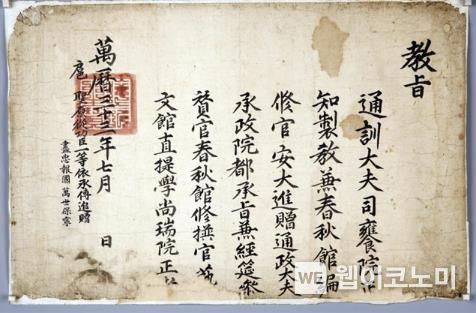 教旨
通訓大夫司饔院正
知製教兼春秋館編
修官安大進贈通政大夫
承政院都承旨兼經筵參
贊官春秋館修撰官藝
文館直提學尚瑞院正者
萬曆三十三年七月 日
扈聖原從功臣一等依承傳追贈
盡忠報國 萬世保寧
WE 웹이코노미